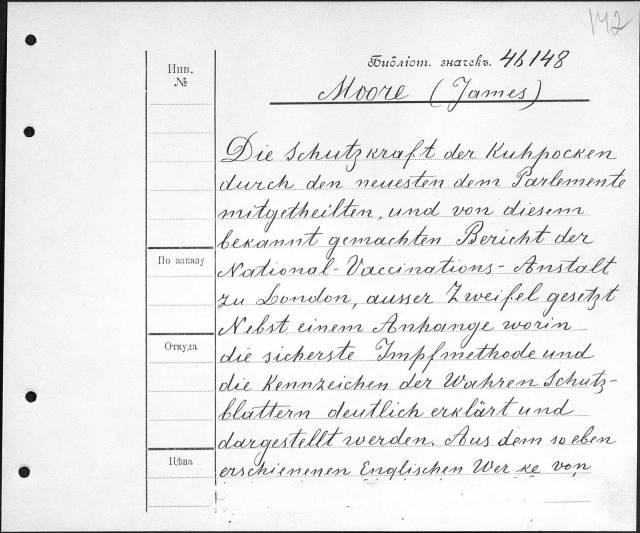 142
Библіот. значекъ. 4b148
Инв.
№
Moore (James)
Die Schutzkraft der Kuhpocken
durch den neuesten dem Parlemente
mitgetheilten, und von diesem
bekannt gemachten Bericht der
По заказу
National-Vaccinations-Anstalt
zu London, ausser Zweifel gesetzt
Nebst einem Anhange worin
Откуда
die sicherste Impfmethode und
die Kennzeichen der Wahren Schutz-
blattern deutlich erklärt und
dargestellt werden. Aus dem soeben
Цѣна
erschienenen Englischen Werke von